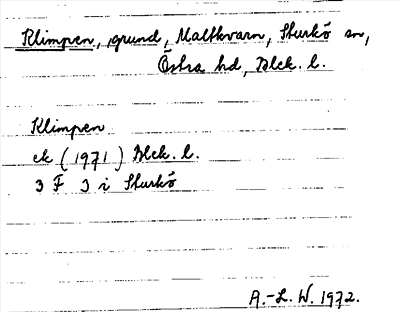 Klimpen, grund, Maltkvarn, Sturkö sn,
Östra hd, Blek. l.
Klimpen
ek (1971) Blek. l.
3 F 3 i Sturkö
A.-L. W. 1972.